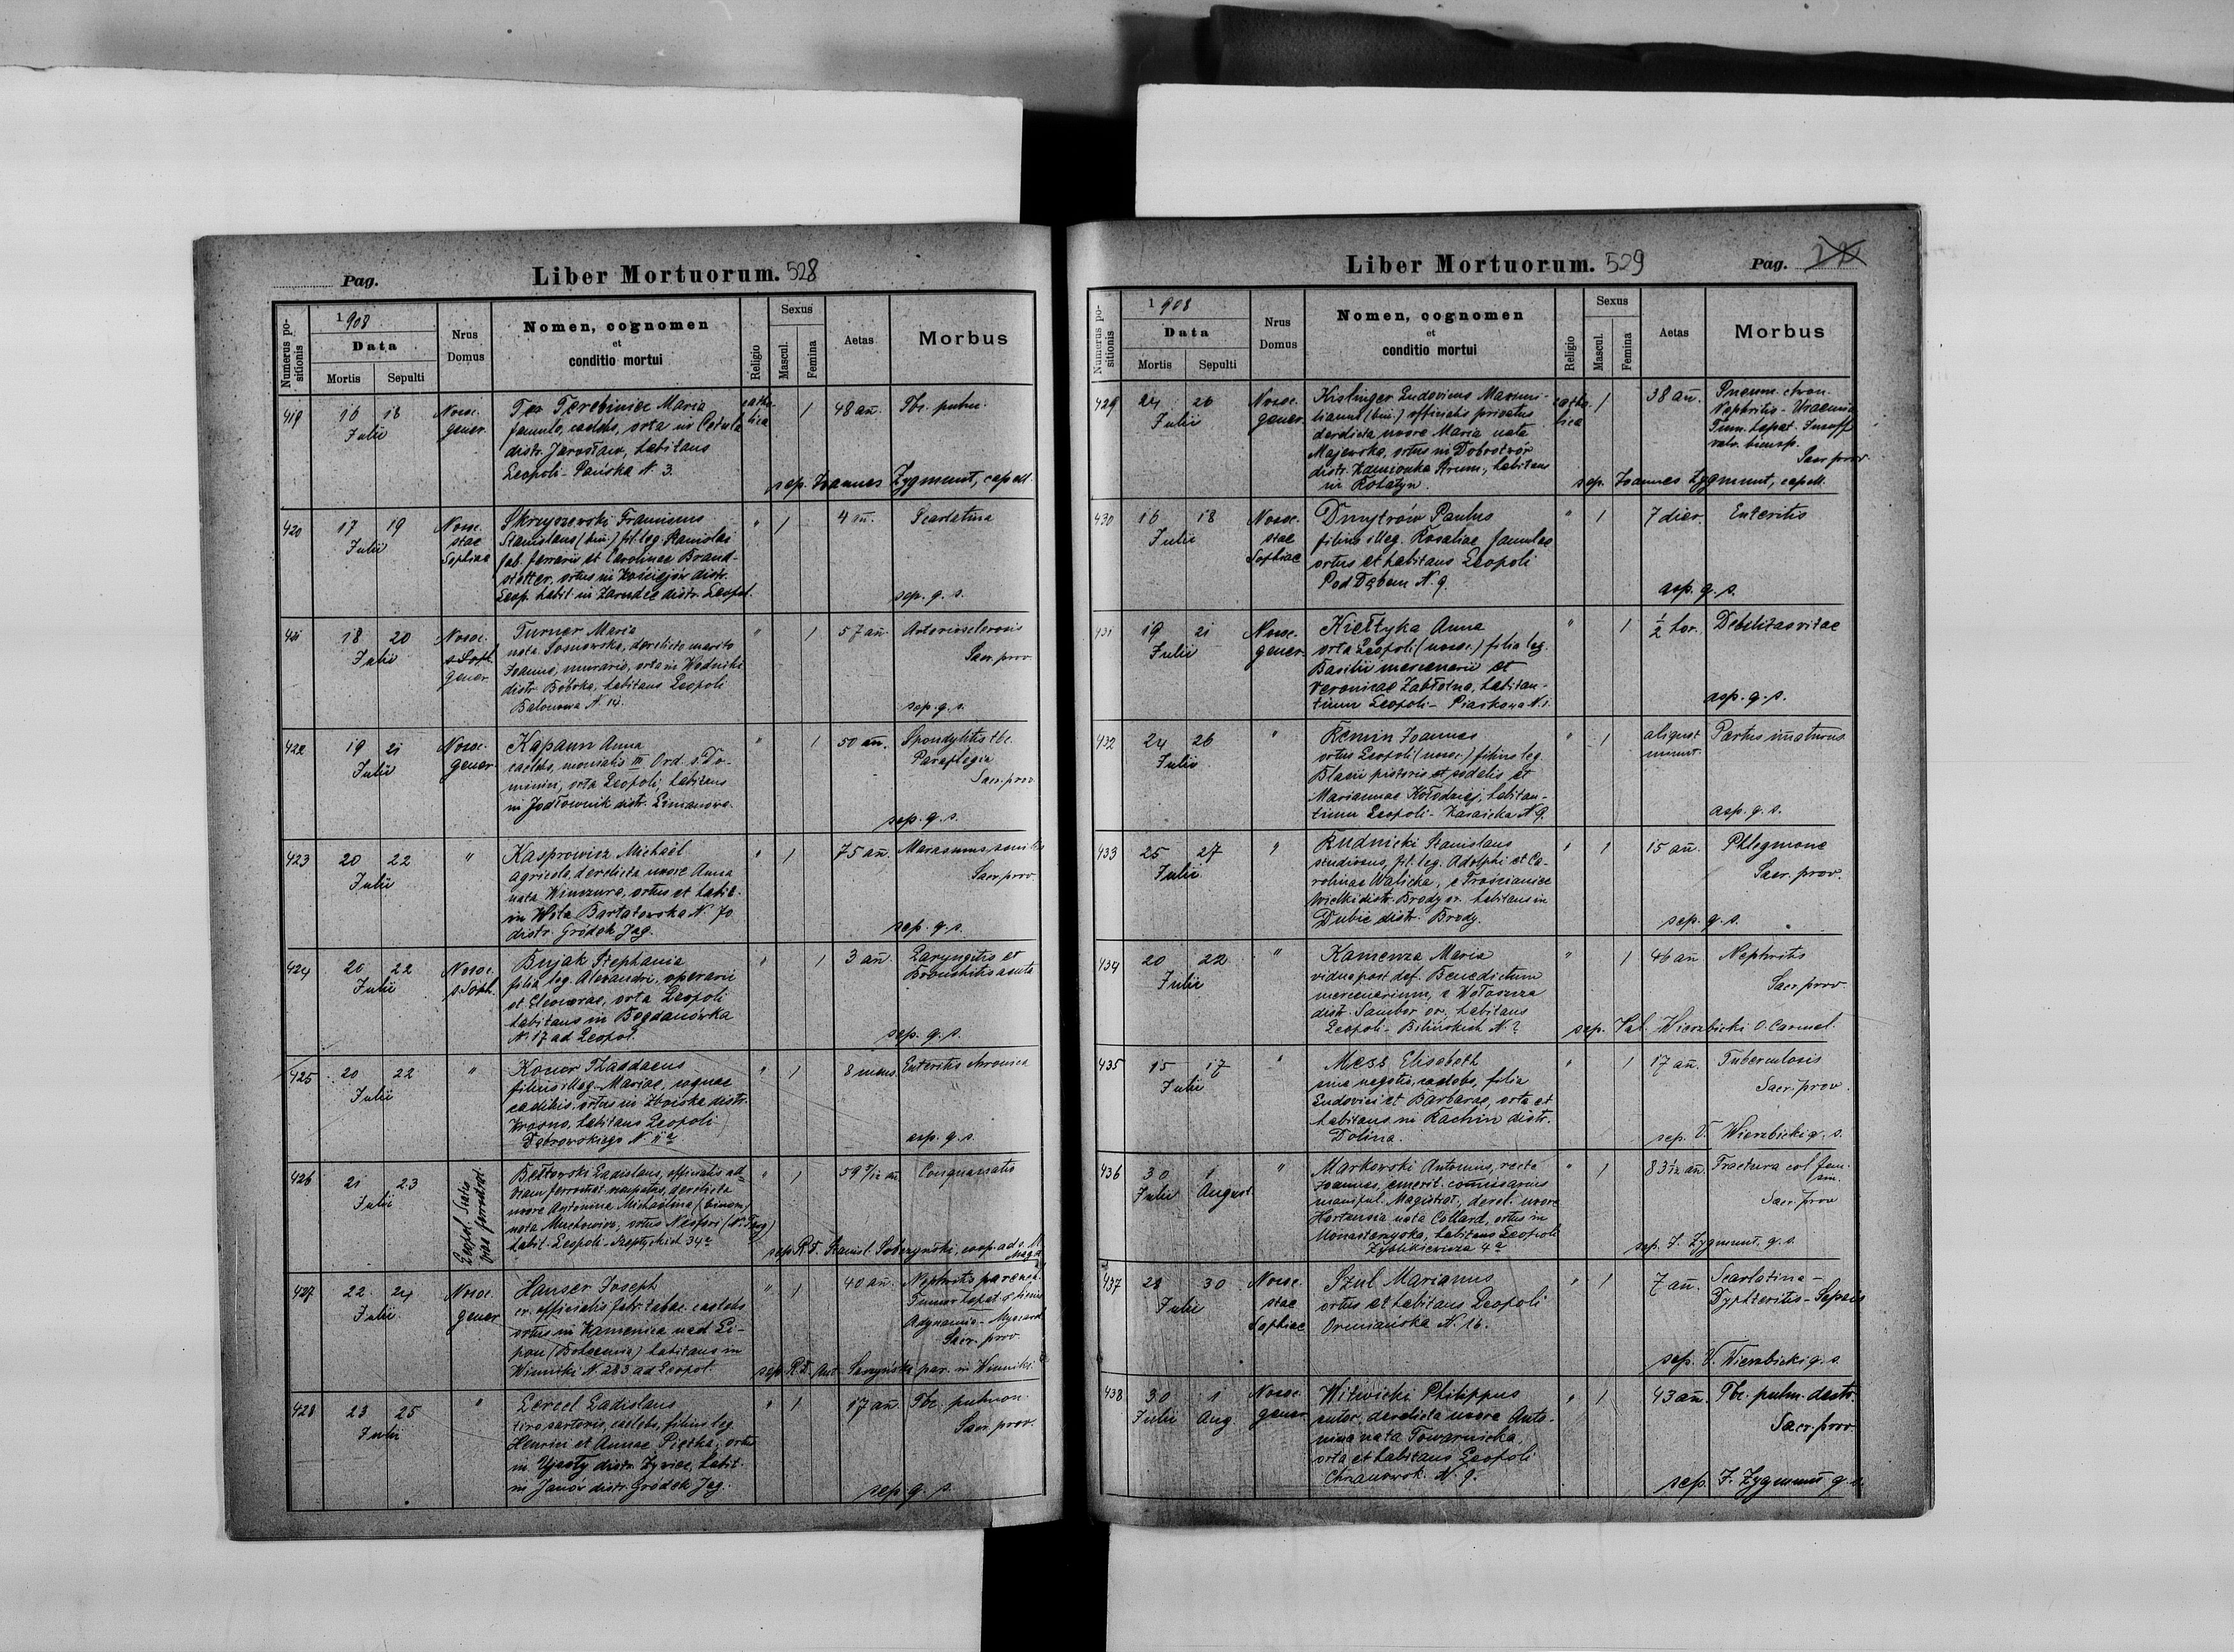 Pag.
Liber Mortuorum. 528
Numerus positionis
1908
Data
Mortis
Sepulti
Nrus Domus
Nomen, cognomen
et
conditio mortui
Religio
Sexus
Mascul.
Femina
Aetas
Morbus
419 16 18 Julii Nosoc. gener.
Terebiniec Maria
famula, caelebs, orta in Cetula
distr. Jarosław, habitans
Leopoli - Pańska N. 3.
catholica 1 48 an. Tbc. pulm.
sep. Joannes Zygmunt, capell.
420 17 19 Julii Nosoc. stae Sophiae
Skrzyszewski Franciscus
Stanislaus (bin.) fil. leg. Stanislai
fab. ferrarii et Carolinae Brand-
stetter, ortus in Kościejów distr.
Leop. habit. in Zarudce distr. Leopol.
" 1 4 an. Scarlatina
sep. q. s.
421 18 20 Julii Nosoc. gener.
Turner Maria
nata Sosnowska, derelicto marito
Joanne, murario, orta in Wodniki
distr. Bóbrka, habitans Leopoli
Balonowa N. 14.
" 1 57 an. Arteriosclerosis
Sacr. prov.
sep. q. s.
422 19 21 Julii Nosoc. gener.
Kapaun Anna
caelebs, monialis III Ord. s. Do-
minici, orta Leopoli, habitans
in Jodłownik distr. Limanowa.
" 1 50 an. Spondylitis tbc.
Paraplegia
Sacr. prov.
sep. q. s.
423 20 22 Julii "
Kasprowicz Michaël
agricola, derelicta uxore Anna
nata Winczura, ortus et habit.
in Wola Bartatowska N. 70
distr. Gródek Jag.
" 1 75 an. Marasmus senilis
Sacr. prov.
sep. q. s.
424 20 22 Julii Nosoc. s. Soph.
Bujak Stephania
filia leg. Alexandri, operarii
et Eleonorae, orta Leopoli
habitans in Bogdanówka
N. 17 ad Leopol.
" 1 3 an. Laryngitis et
Bronchitis acuta
sep. q. s.
425 20 22 Julii "
Konor Thaddaeus
filius illeg. Mariae, coquae
caelibis, ortus in Zboiska distr.
Krosno, habitans Leopoli
Dąbrowskiego N.
" 1 8 mens. Enteritis chronica
asp. q. s.
426 21 23 Julii
Bełtowski Ladislaus, officialis ad
viam ferream nuputus, derelicta
uxore Antonina Michaëlina (binom)
nata Muchowicz, ortus
habit. Leopoli - Szeptyckich 34a
" 1 59 an. Conquassatio
sep. R. D. Stanisl. Sobczyński, coop. ad s. M. Magd.
427 22 24 Julii Nosoc. gener.
Hauser Joseph
er. officialis fabr. tabac. caelebs
ortus in Kamenica nad Li-
pou (Bohaemia) habitans in
Winniki N. 283 ad Leopol.
" 1 40 an. Nephritis parench.
Tumor hepat. et lienis
Adynamia - Myocard.
Sacr. prov.
sep. R. D. Ant. par. in Winniki.
428 23 25 Julii "
Lercel Ladislaus
tiro sartoris, caelebs, filius leg.
Henrici et Annae Piętka, ortus
in Ujsoły distr. Żywiec, habit.
in Janów distr. Gródek Jag.
" 1 17 an. Tbc. pulmon.
Sacr. prov.
sep. q. s.
Liber Mortuorum. 529
Pag.
Numerus positionis
1908
Data
Mortis
Sepulti
Nrus Domus
Nomen, cognomen
et
conditio mortui
Religio
Sexus
Mascul.
Femina
Aetas
Morbus
429 24 26 Julii Nosoc. gener.
Kislinger Ludovicus Maximi-
lianus (bin.) officialis privatus
derelicta uxore Maria nata
Majewska, ortus in Dobrotwór
distr. Kamionka Strum., habitans
in Rohatyn.
catholica 1 38 an. Pneum. chron.
Nephritis - Uraemia
Tum. hepat. Insuff.
valv. bicusp.
Sacr. prov.
sep. Joannes Zygmunt, capell.
430 16 18 Julii Nosoc. stae Sophiae
Dmytrów Paulus
filius illeg. Rosaliae famulae
ortus et habitans Leopoli
Pod Dębem N. 9.
" 1 7 dier. Enteritis
asp. q. s.
431 19 21 Julii Nosoc. gener.
Kiełtyka Anna
orta Leopoli (nosoc.) filia leg.
Basilii mercenarii et
Veronicae Zabłotna, habitan-
tium Leopoli - Piaskowa N. 1.
" 1 ½ hor. Debilitas vitae
asp. q. s.
432 24 26 Julii "
Remin Joannes
ortus Leopoli (nosoc.) filius leg.
Blasii pistoris et sodalis et
Mariannae Kołodziej, habitan-
tium Leopoli - N. 9.
" 1 aliquot minut. Partus immaturus
asp. q. s.
433 25 27 Julii "
Rudnicki Stanislaus
studiosus, fil. leg. Adolphi et Ca-
rolinae Walicka, e Trościaniec
Wielki distr. Brody or. habitans in
Dubie distr. Brody.
" 1 15 an. Phlegmone
Sacr. prov.
sep. q. s.
434 20 22 Julii "
Kamenza Maria
vidua post def. Benedictum
mercenarium, e Wołoszcza
distr. Sambor or. habitans
Leopoli - Bilińskich N. 2
" 1 46 an Nephritis
Sacr. prov.
sep. Val. Wierzbicki O. Carmel.
435 15 17 Julii "
Mess Elisabeth
sine negotio, caelebs, filia
Ludovici et Barbarae, orta et
habitans in Rachin distr.
Dolina.
" 1 17 an. Tuberculosis
Sacr. prov.
sep. V. Wierzbicki q. s.
436 30 Julii 1 August "
Markowski Antonius, recte
Joannes, emerit. commissarius
manipul. Magistrat., derel. uxore
Hortensia nata Collard, ortus in
Monasterzyska, habitans Leopoli
Zyblikiewicza 4a
" 1 83 an. Fractura col. fem.
Sacr. prov
sep. J. Zygmunt, q. s.
437 28 30 Julii Nosoc. stae Sophiae
Szul Marianus
ortus et habitans Leopoli
Ormiańska N. 16.
" 1 7 an. Scarlatina -
Dyphteritis - Sepsis
sep. V. Wierzbicki q. s.
438 30 Julii 1 Aug. Nosoc. gener.
Witwicki Philippus
sutor, derelicta uxore Anto-
nina nata Towarnicka,
orta et habitans Leopoli
Chrzanowsk. N. 9.
" 1 43 an. Tbc. pulm. dextr.
Sacr. prov.
sep. J. Zygmunt q. s.